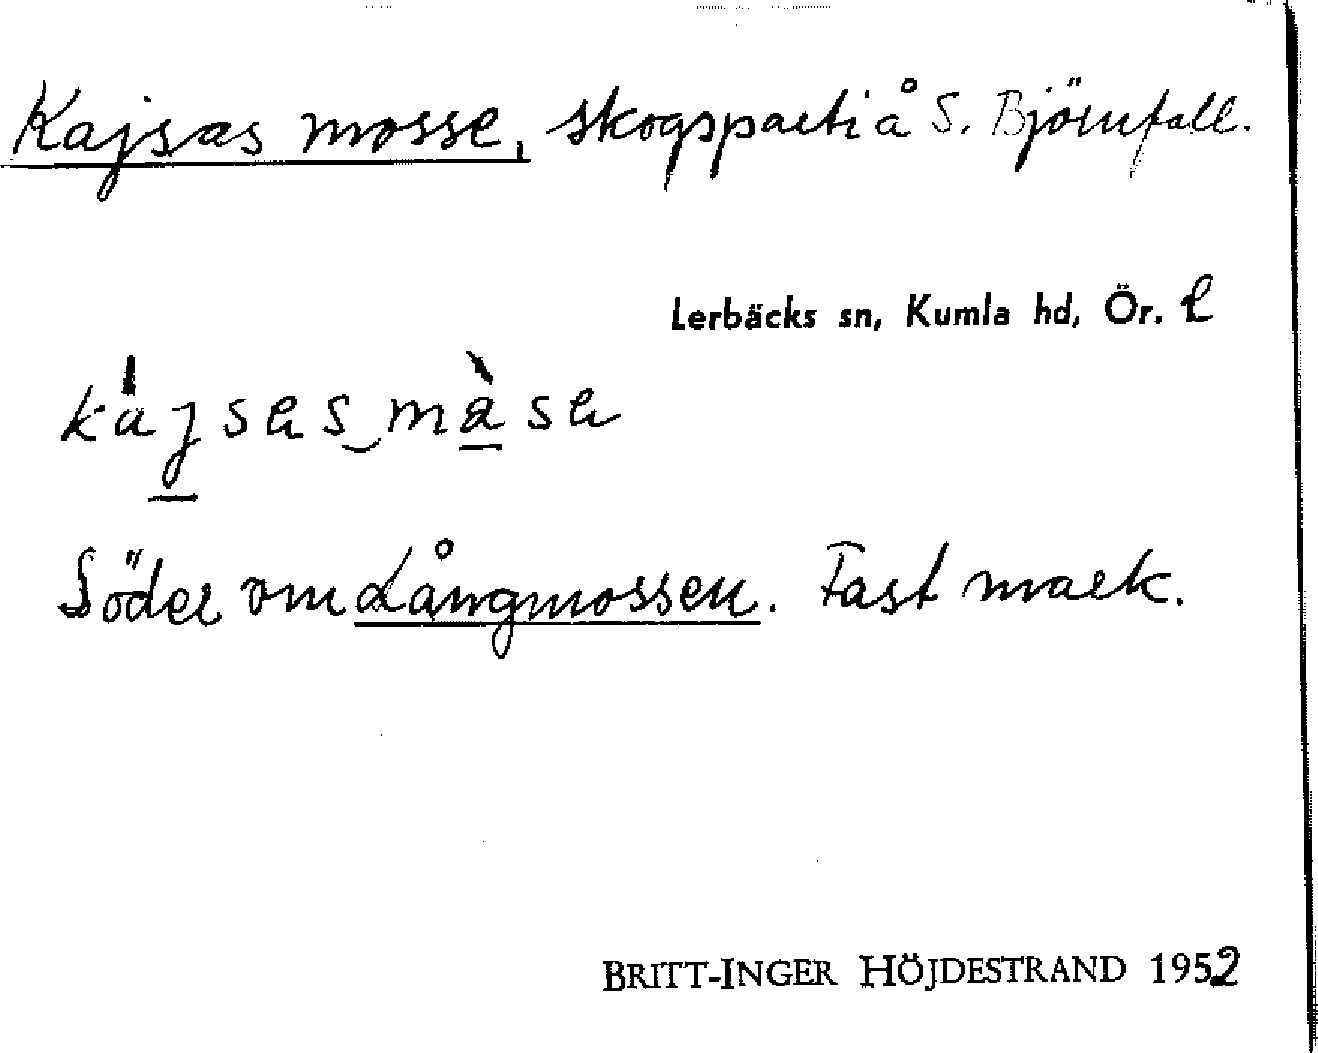 Kajsas mosse, skogsparti å S. Björnfall.
Lerbäcks sn, Kumla hd, Ör. l
kájsas màsa
Söder om Långmossen. Fast mark.
BRITT-INGER HÖJDESTRAND 1952